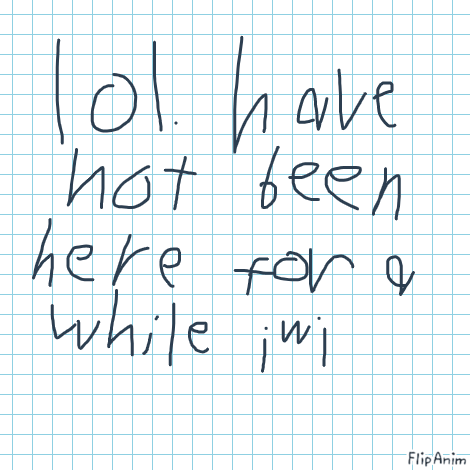 lol. have
not been
here for a
while ;w;
FlipAnim